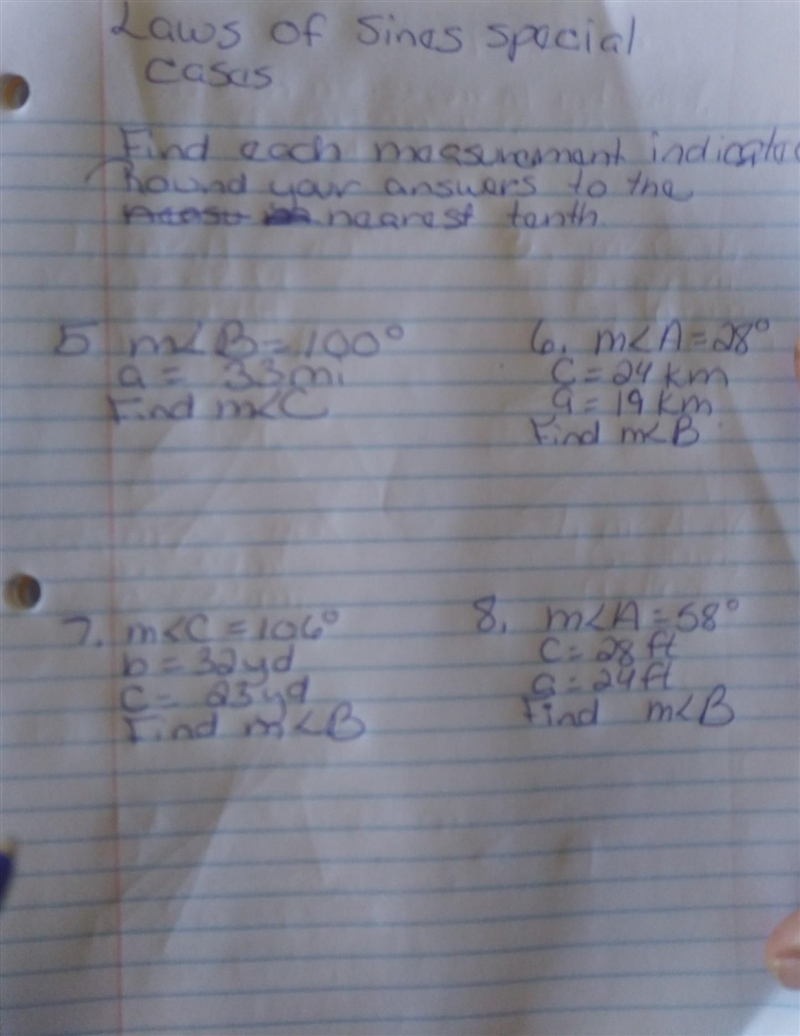 Laws of Sines special
cases
Find each measurement indicated
Round your answers to the
nearest tenth.
5 m<B=100°
a = 33mi
Find m<C
6. m<A=28°
C=24km
a=19km
Find m<B
7. m<C=106°
b=32yd
c= 23yd
Find m<B
8. m<A=58°
C=28ft
a=24ft
Find m<B